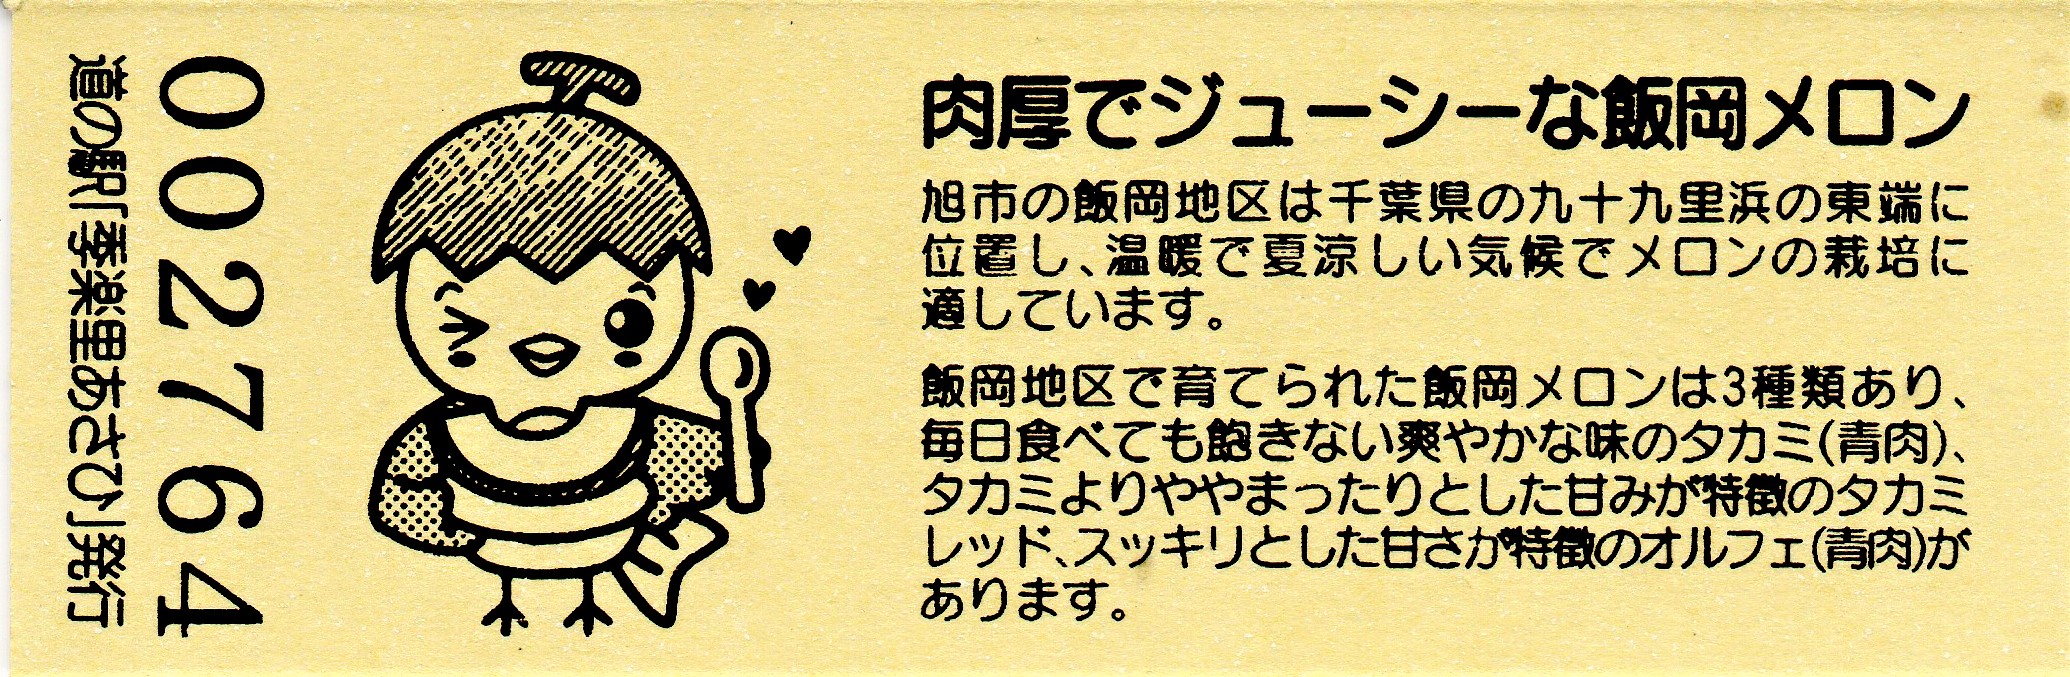 道の駅「季楽里あさひ」発行
002764
肉厚でジューシーな飯岡メロン
旭市の飯岡地区は千葉県の九十九里浜の東端に
位置し、温暖で夏涼しい気候でメロンの栽培に
適しています。
飯岡地区で育てられた飯岡メロンは3種類あり、
毎日食べても飽きない爽やかな味のタカミ(青肉)、
タカミよりややまったりとした甘みが特徴のタカミ
レッド、スッキリとした甘さが特徴のオルフェ(青肉)が
あります。